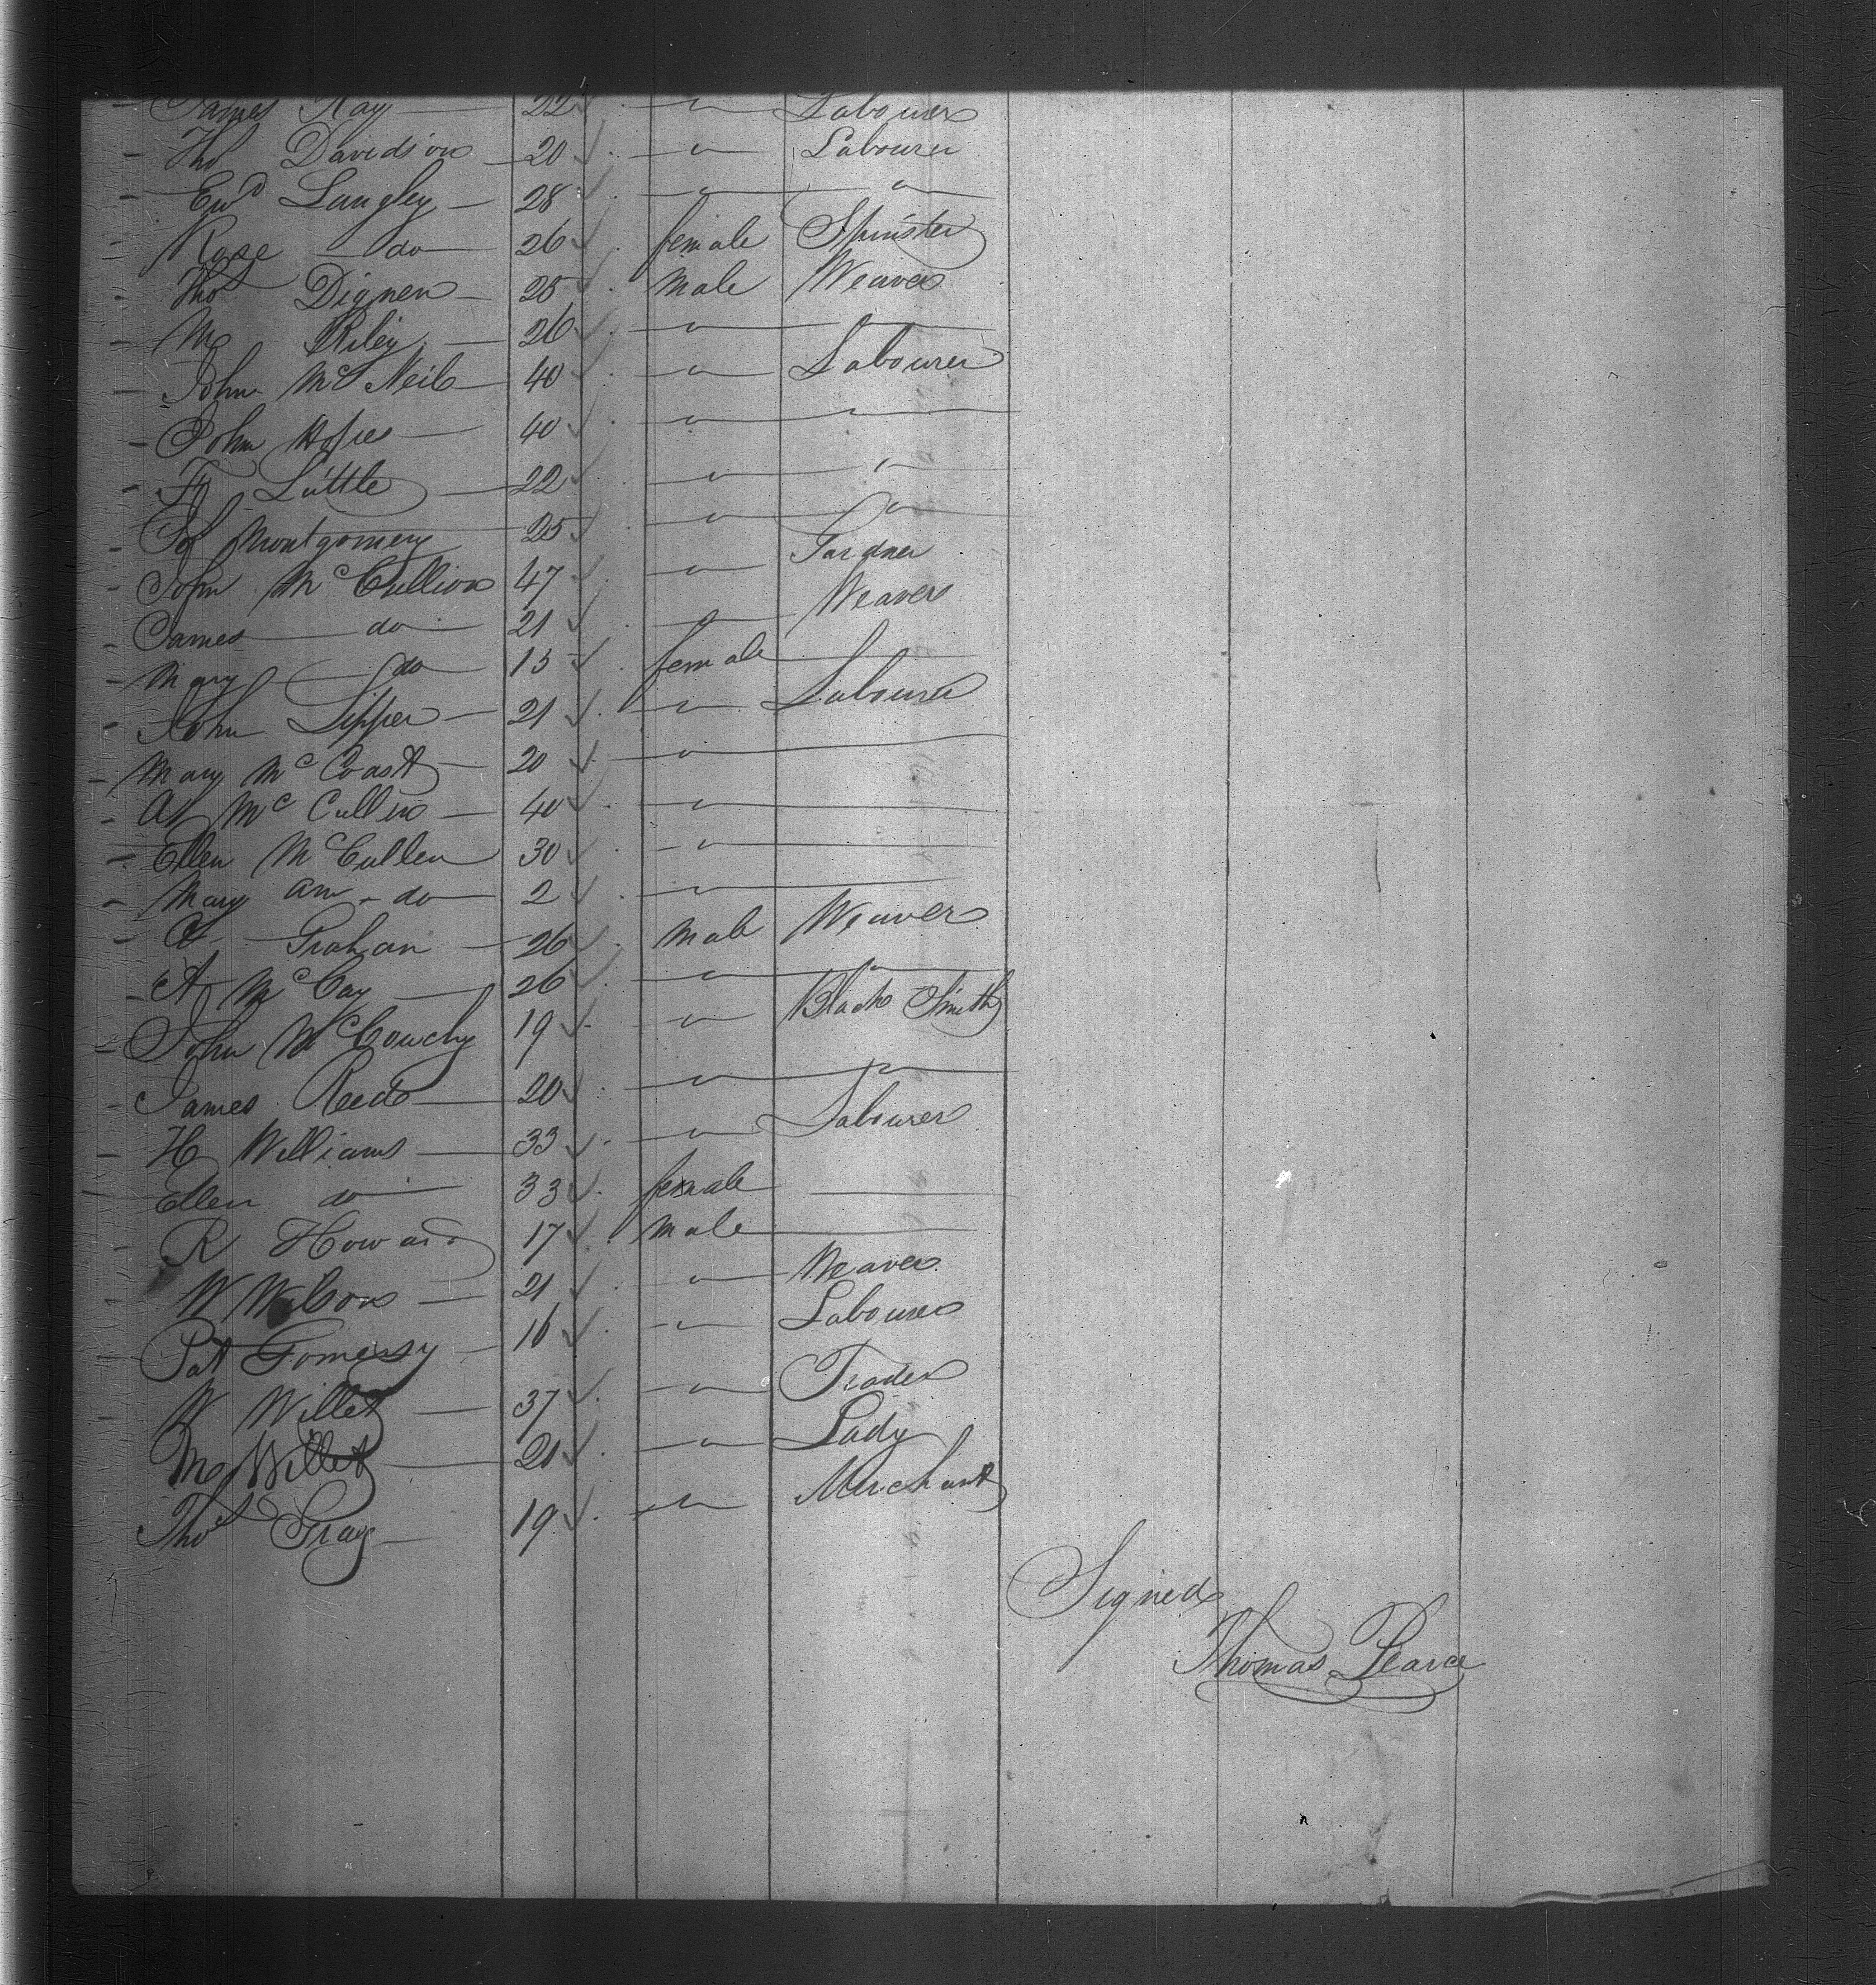 James Kay — 22 " Labourer
Tho Davidson — 20 " Labourer
Edwd Langley — 28 " "
Rose do 26 female Spinster
Thos Dignen — 28 male Weaver
Riley — 26 "
John McNeil — 40 " Labourer
John 40 " "
Little — 22 " "
Montgomery 25 " "
John McCullion 47 " Gardner
James do 21 — Weaver
Mary do 13 female —
John Lipper — 21 " Labourer
Mary McCoast — 20 " —
McCullen — 40 " —
Ellen McCullen 30 " —
Mary Ann do 2 " —
Graham — 26 male Weaver
A McCay — 26 " "
John McCouchy 19 " Black Smith
James Reed — 20 " "
H Williams — 33 " Labourer
Ellen do 33 female —
R Howard 17 male —
W Wilson — 21 " Weaver
Pat Gomersy — 16 " Labourer
W Willet — 37 " Trader
Willet — 21 " Lady
Thos Gray — 19 " Merchant
Signed
Thomas Pearce